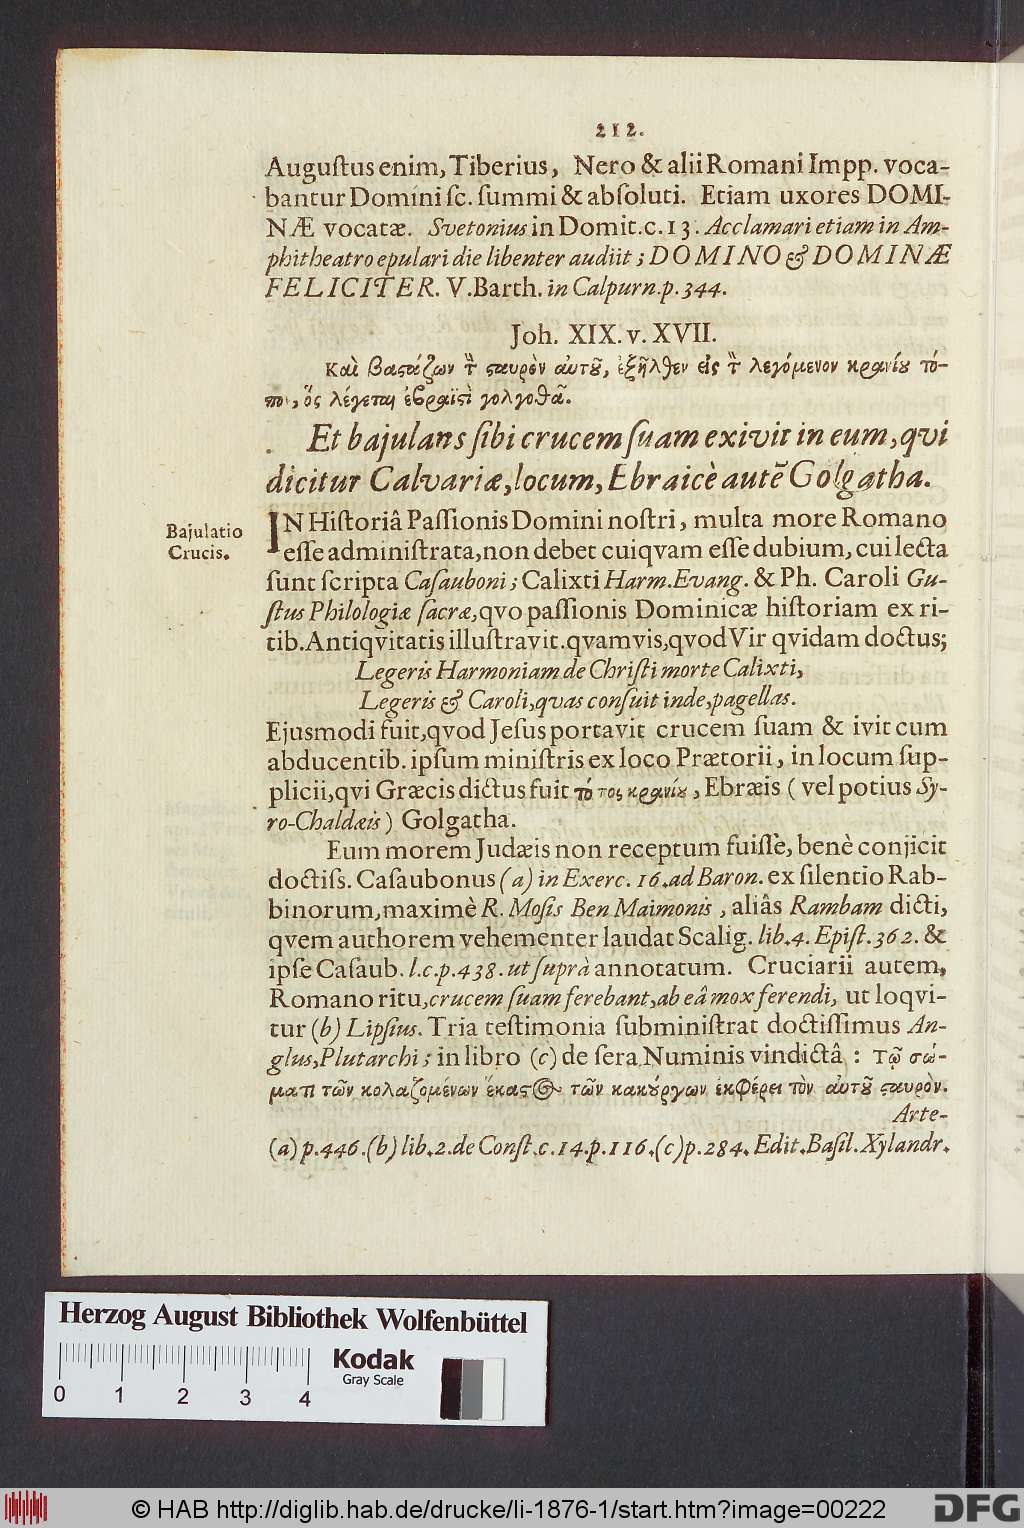 212.
Auguſtus enim, Tiberius, Nero & alii Romani Impp. voca-
bantur Domini ſc. ſummi & abſoluti. Etiam uxores DOMI-
NÆ vocatæ. Svetonius in Domit. c. 13. Acclamari etiam in Am-
phitheatro epulari die libenter audiit; DOMINO & DOMINÆ
FELICITER. V. Barth. in Calpurn. p. 344.
Joh. XIX. v. XVII.
Καὶ βαϛάζων τ̀ ϛαυρὸν αὑτȣ͂, ἐξῆλθεν εἰς τ̀ λεγόμενον κρανίȣ τό-
πον, ὅς λέγεται ἑβραϊϛὶ γολγοθᾶ.
Et bajulans ſibi crucem ſuam exivit in eum, qvi
dicitur Calvariæ, locum, Ebraicè autẽ Golgatha.
Bajulatio
Crucis.
IN Hiſtoriâ Paſſionis Domini noſtri, multa more Romano
eſſe adminiſtrata, non debet cuiqvam eſſe dubium, cui lecta
ſunt ſcripta Caſauboni; Calixti Harm. Evang. & Ph. Caroli Gu-
ſtus Philologiæ ſacræ, qvo paſſionis Dominicæ hiſtoriam ex ri-
tib. Antiqvitatis illuſtravit. qvamvis, qvod Vir qvidam doctus;
Legeris Harmoniam de Chriſti morte Calixti,
Legeris & Caroli, qvas conſuit inde, pagellas.
Ejusmodi fuit, qvod Jeſus portavit crucem ſuam & ivit cum
abducentib. ipſum miniſtris ex loco Prætorii, in locum ſup-
plicii, qvi Græcis dictus fuit τόπος κρανίȣ, Ebræis (vel potius Sy-
ro-Chaldæis) Golgatha.
Eum morem Judæis non receptum fuiſſè, benè conjicit
doctiſs. Caſaubonus (a) in Exerc. 16. ad Baron. ex ſilentio Rab-
binorum, maximè R. Moſis Ben Maimonis, aliâs Rambam dicti,
qvem authorem vehementer laudat Scalig. lib. 4. Epiſt. 362. &
ipſe Caſaub. l. c. p. 438. ut ſuprà annotatum. Cruciarii autem,
Romano ritu, crucem ſuam ferebant, ab eâ mox ferendi, ut loqvi-
tur (b) Lipſius. Tria teſtimonia ſubminiſtrat doctiſſimus An-
glus, Plutarchi; in libro (c) de ſera Numinis vindictâ : Τῷ σώ-
ματι τῶν κολαζομένων ἕκαϛος τῶν κακȣ́ργων ἐκφέρει τὸν αὑτȣ͂ ϛαυρὸν.
Arte-
(a) p. 446. (b) lib. 2. de Conſt. c. 14. p. 116. (c) p. 284. Edit. Baſil. Xylandr.
Herzog August Bibliothek Wolfenbüttel
Kodak
Gray Scale
0 1 2 3 4
© HAB http://diglib.hab.de/drucke/li-1876-1/start.htm?image=00222
DFG